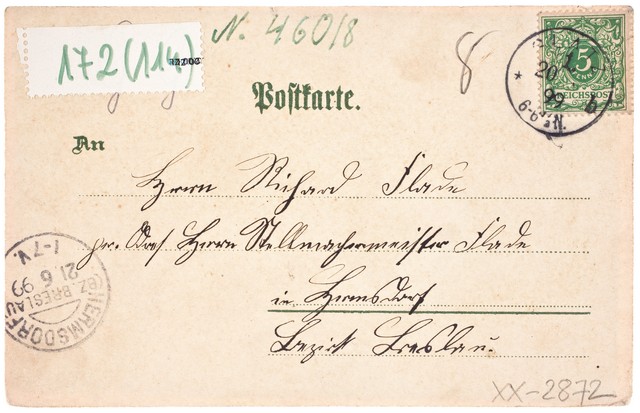 172 (114)
N. 460/8
8
5
PFENNIG
REICHSPOST
20
99
6-6
N.
b
Postkarte.
An
Herrn Richard Flade
pr. Adr. Herrn Stellmachermeister Flade
in Hermsdorf
Bezirk Breslau.
HERMSDORF
(BZ. BRESLAU)
21 6 99
1-7V.
XX-2872